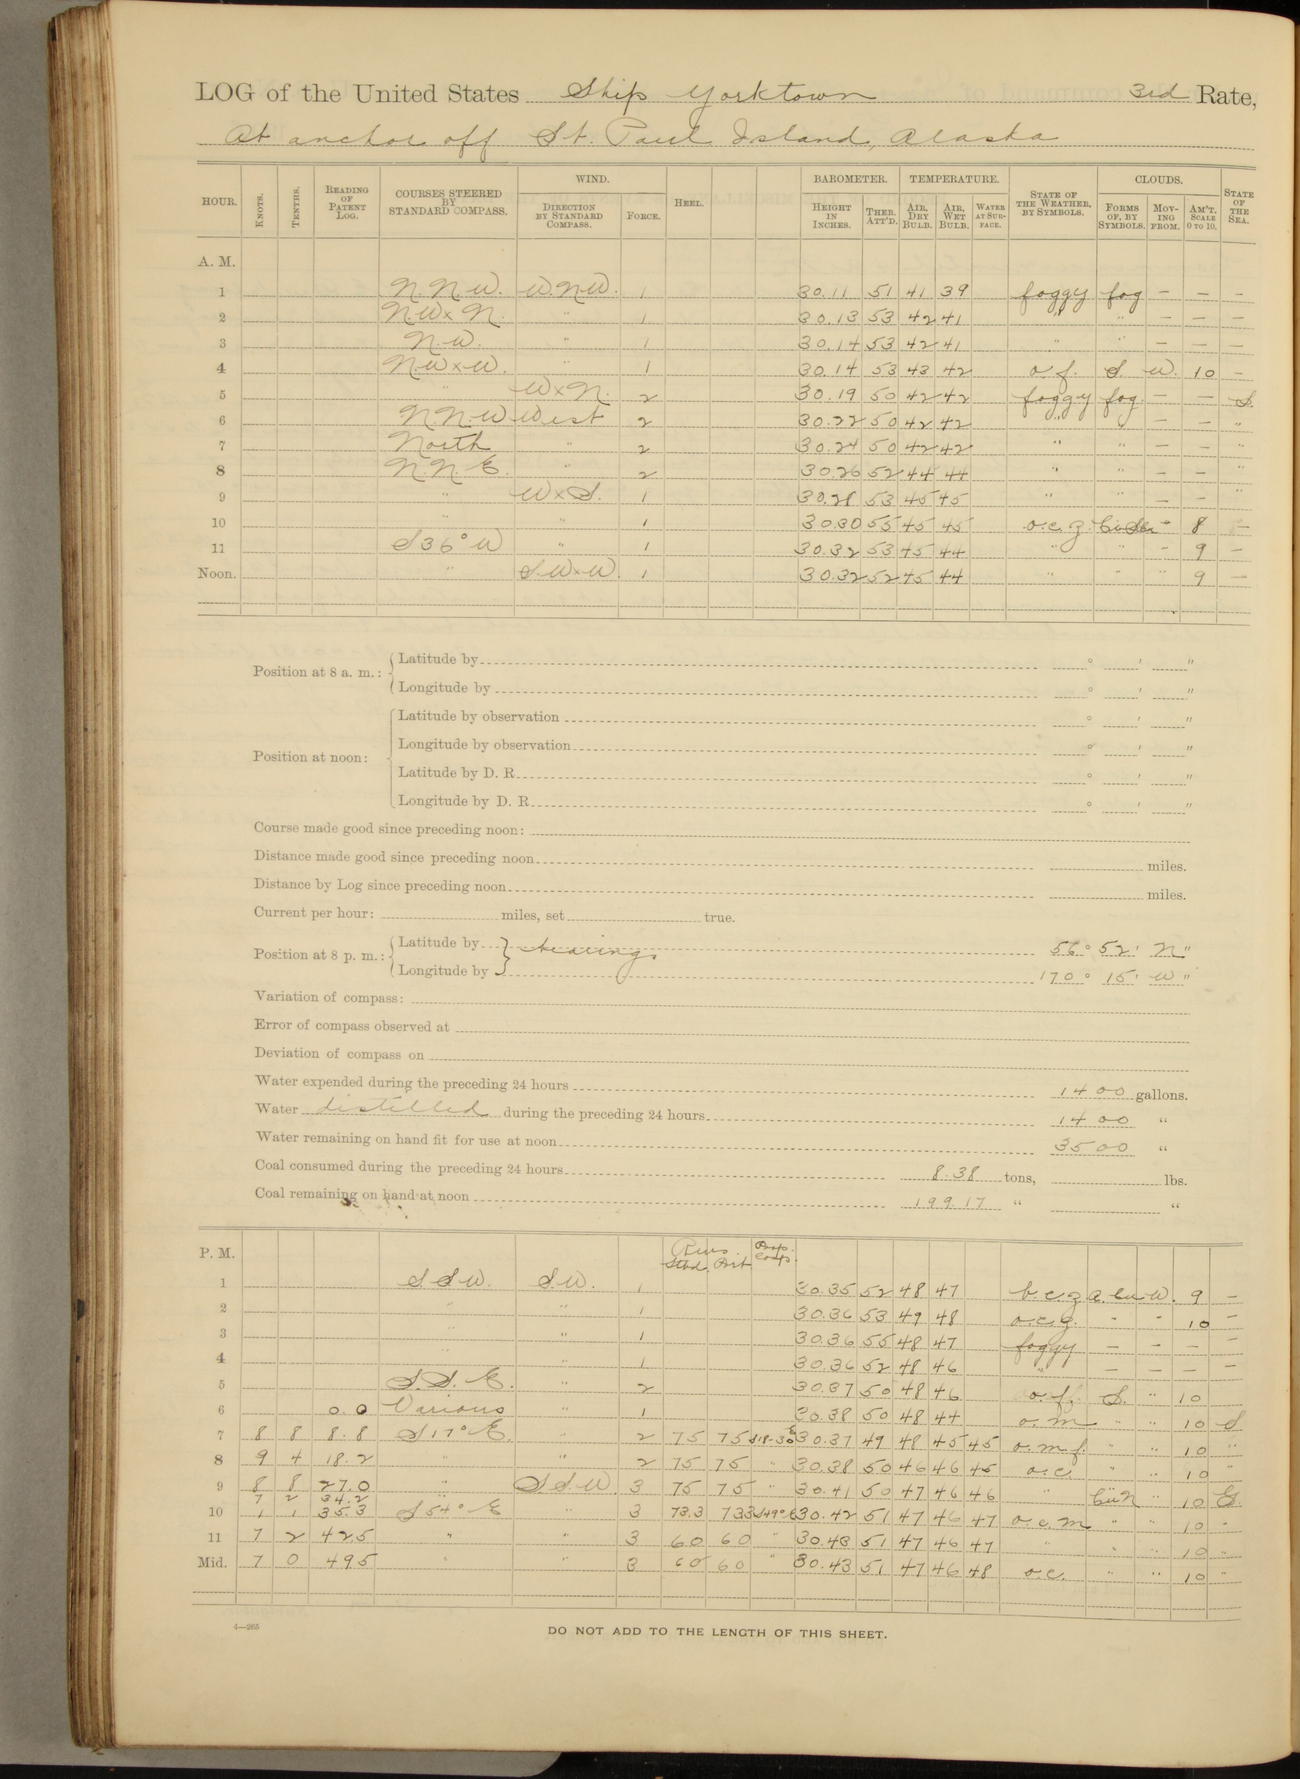 LOG of the United States Ship Yorktown 3rd Rate,
At anchor off St. Paul Island, Alaska
HOUR. KNOTS. TENTHS. READING OF PATENT LOG. COURSES STEERED BY STANDARD COMPASS. WIND. DIRECTION BY STANDARD COMPASS. FORCE. HEEL. BAROMETER. HEIGHT IN INCHES. THER. ATT'D. TEMPERATURE. AIR, DRY BULB. AIR, WET BULB. WATER AT SURFACE. STATE OF THE WEATHER, BY SYMBOLS. CLOUDS. FORMS OF, BY SYMBOLS. MOVING FROM. AM'T, SCALE 0 TO 10. STATE OF THE SEA.
A. M.
1 N.N.W. W.N.W. 1 30.11 51 41 39 foggy fog — — —
2 N.W x N. " 1 30.13 53 42 41 " " — — —
3 N.W. " 1 30.14 53 42 41 " " — — —
4 N.W x W. " 1 30.14 53 43 42 o.f. S. W. 10 —
5 " W x N. 2 30.19 50 42 42 foggy fog — — S.
6 N.N.W West 2 30.22 50 42 42 " " — — "
7 North " 2 30.24 50 42 42 " " — — "
8 N.N.E. " 2 30.26 52 44 44 " " — — "
9 " W x S. 1 30.28 53 45 45 " " — — "
10 " " 1 30.30 55 45 45 o.c.z. — 8 —
11 S 36° W " 1 30.32 53 45 44 " " — 9 —
Noon. " S.W x W. 1 30.32 52 45 44 " " " 9 —
Position at 8 a. m.: Latitude by ° ' "
Longitude by ° ' "
Position at noon: Latitude by observation ° ' "
Longitude by observation ° ' "
Latitude by D. R. ° ' "
Longitude by D. R. ° ' "
Course made good since preceding noon:
Distance made good since preceding noon miles.
Distance by Log since preceding noon miles.
Current per hour: miles, set true.
Position at 8 p. m.: Latitude by } bearings 56° 52' N "
Longitude by 170° 15' W "
Variation of compass:
Error of compass observed at
Deviation of compass on
Water expended during the preceding 24 hours 1400 gallons.
Water distilled during the preceding 24 hours 1400 "
Water remaining on hand fit for use at noon 3500 "
Coal consumed during the preceding 24 hours 8.38 tons, lbs.
Coal remaining on hand at noon 199.17 " "
P. M. Revs. Stbd. Port
1 S.S.W. S.W. 1 30.35 52 48 47 b.c.z a.cu W. 9 —
2 " " 1 30.36 53 49 48 o.c.z. " " 10 —
3 " " 1 30.36 55 48 47 foggy — — — —
4 " " 1 30.36 52 48 46 " — — — —
5 S.S.E. " 2 30.37 50 48 46 o.f. S. " 10
6 0.0 Various " 1 30.38 50 48 44 o.m " " 10 S
7 8 8 8.8 S 17° E. " 2 75 75 30.37 49 48 45 45 o.m.f. " " 10 "
8 9 4 18.2 " " 2 75 75 " 30.38 50 46 46 45 o.c. " " 10 "
9 8 8 27.0 " S.S.W 3 75 75 " 30.41 50 47 46 46 " " 10
7 2 34.2
10 1 1 35.3 S 54° E " 3 73.3 73.3 30.42 51 47 46 47 o.c.m " " 10 "
11 7 2 42.5 " " 3 60 60 " 30.43 51 47 46 47 " " " 10 "
Mid. 7 0 49.5 " " 3 60 60 " 30.43 51 47 46 48 o.c. " " 10 "
4—265
DO NOT ADD TO THE LENGTH OF THIS SHEET.